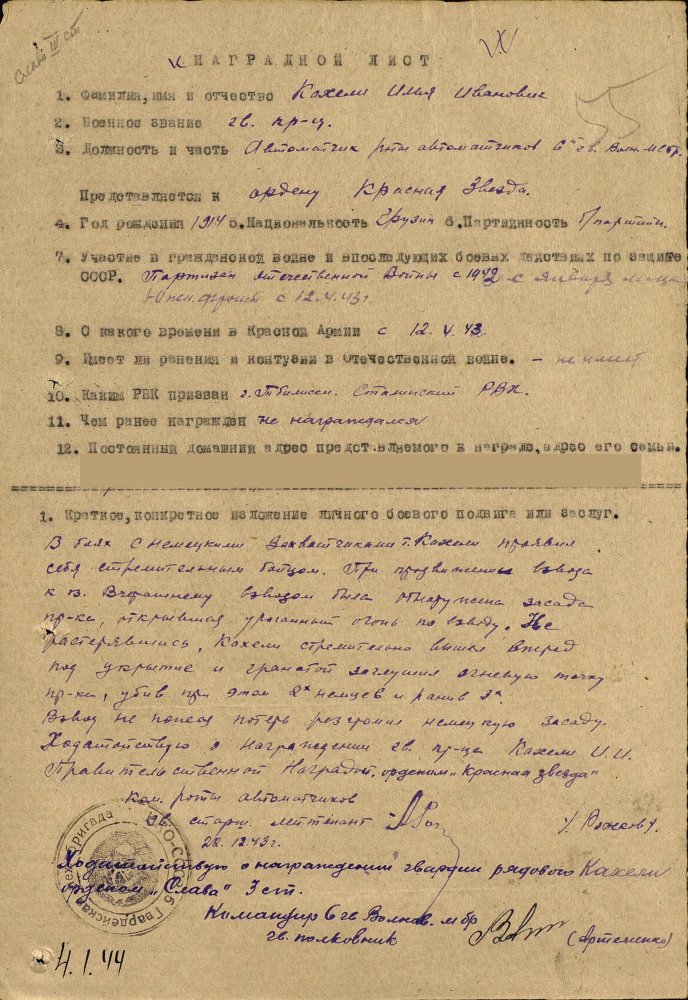 Слава III ст
НАГРАДНОЙ ЛИСТ
55
1. Фамилия, имя и отчество Кахели Илья Иванович
2. Военное звание гв. кр-ц.
3. Должность и часть Автоматчик роты автоматчиков 6й гв. Волн. мбр.
Представляется к ордену Красная Звезда.
4. Год рождения 1914 5. Национальность Грузин 6. Партийность б/партийн.
7. Участие в гражданской войне и впоследующих боевых действиях по защите
СССР. Партизан отечественной Войны с 1942 с января м-ца
Южн. фронт с 12.4.43г.
8. С какого времени в Красной Армии с 12.4.43.
9. Имеет ли ранения и контузии в Отечественной войне. - не имеет
10. Каким РВК призван г. Тбилиси. Сталинский РВК.
11. Чем ранее награжден не награждался
12. Постоянный домашний адрес представляемого к награде, адрес его семьи.
1. Краткое, конкретное изложение личного боевого подвига или заслуг.
В боях с немецкими захватчиками т. Кахели проявил
себя стремительным бойцом. При продвижении взвода
к в. взводом была обнаружена засада
пр-ка, открывшая ураганный огонь по взводу. Не
растерявшись, Кахели стремительно вышел вперед
под укрытие и гранатой заглушил огневую точку
пр-ка, убив при этом 2х немцев и ранив 3х.
Взвод не понеся потерь разгромил немецкую засаду.
Ходатайствую о награждении гв. кр-ца Кахели И.И.
Правительственной Наградой, орденом „Красная звезда"
Ком. роты автоматчиков
гв. старш. лейтенант
28.12.43г.
Ходатайствую о награждении гвардии рядового Кахели
орденом „Слава" 3 ст.
Командир 6 гв Волнов. мбр
гв. полковник (Артеменко)
4.1.44